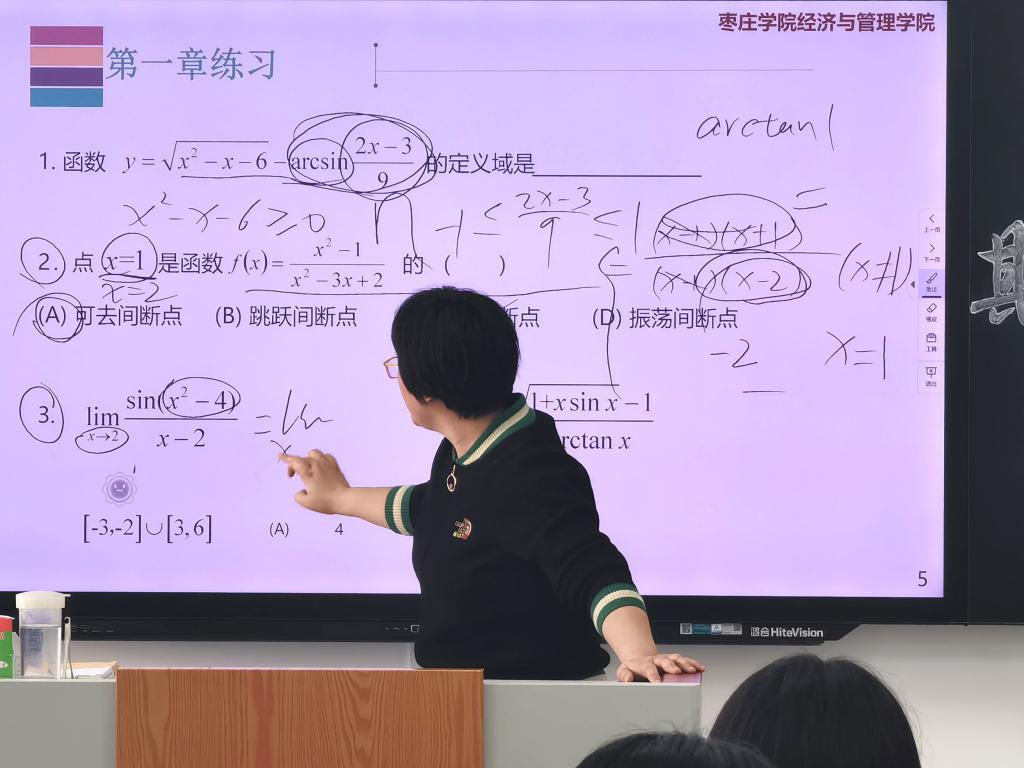 枣庄学院经济与管理学院
第一章练习
arctan 1
1. 函数 y = √(x² − x − 6) − arcsin (2x − 3)/9 的定义域是
x² − x − 6 ≥ 0
−1 ≤ (2x − 3)/9 ≤ 1
=
2. 点 x=1 是函数 f(x) = (x² − 1)/(x² − 3x + 2) 的 ( )
x=2
= (x−1)(x+1)/(x−1)(x−2) (x≠1)
(A) 可去间断点 (B) 跳跃间断点 断点 (D) 振荡间断点
−2 x=1
3. lim x→2 sin(x² − 4)/(x − 2) = lim x
√(1+x sin x) −1
rctan x
[-3,-2]∪[3,6] (A) 4
5
上一页
下一页
批注
橡皮
工具
退出
鸿合 HiteVision